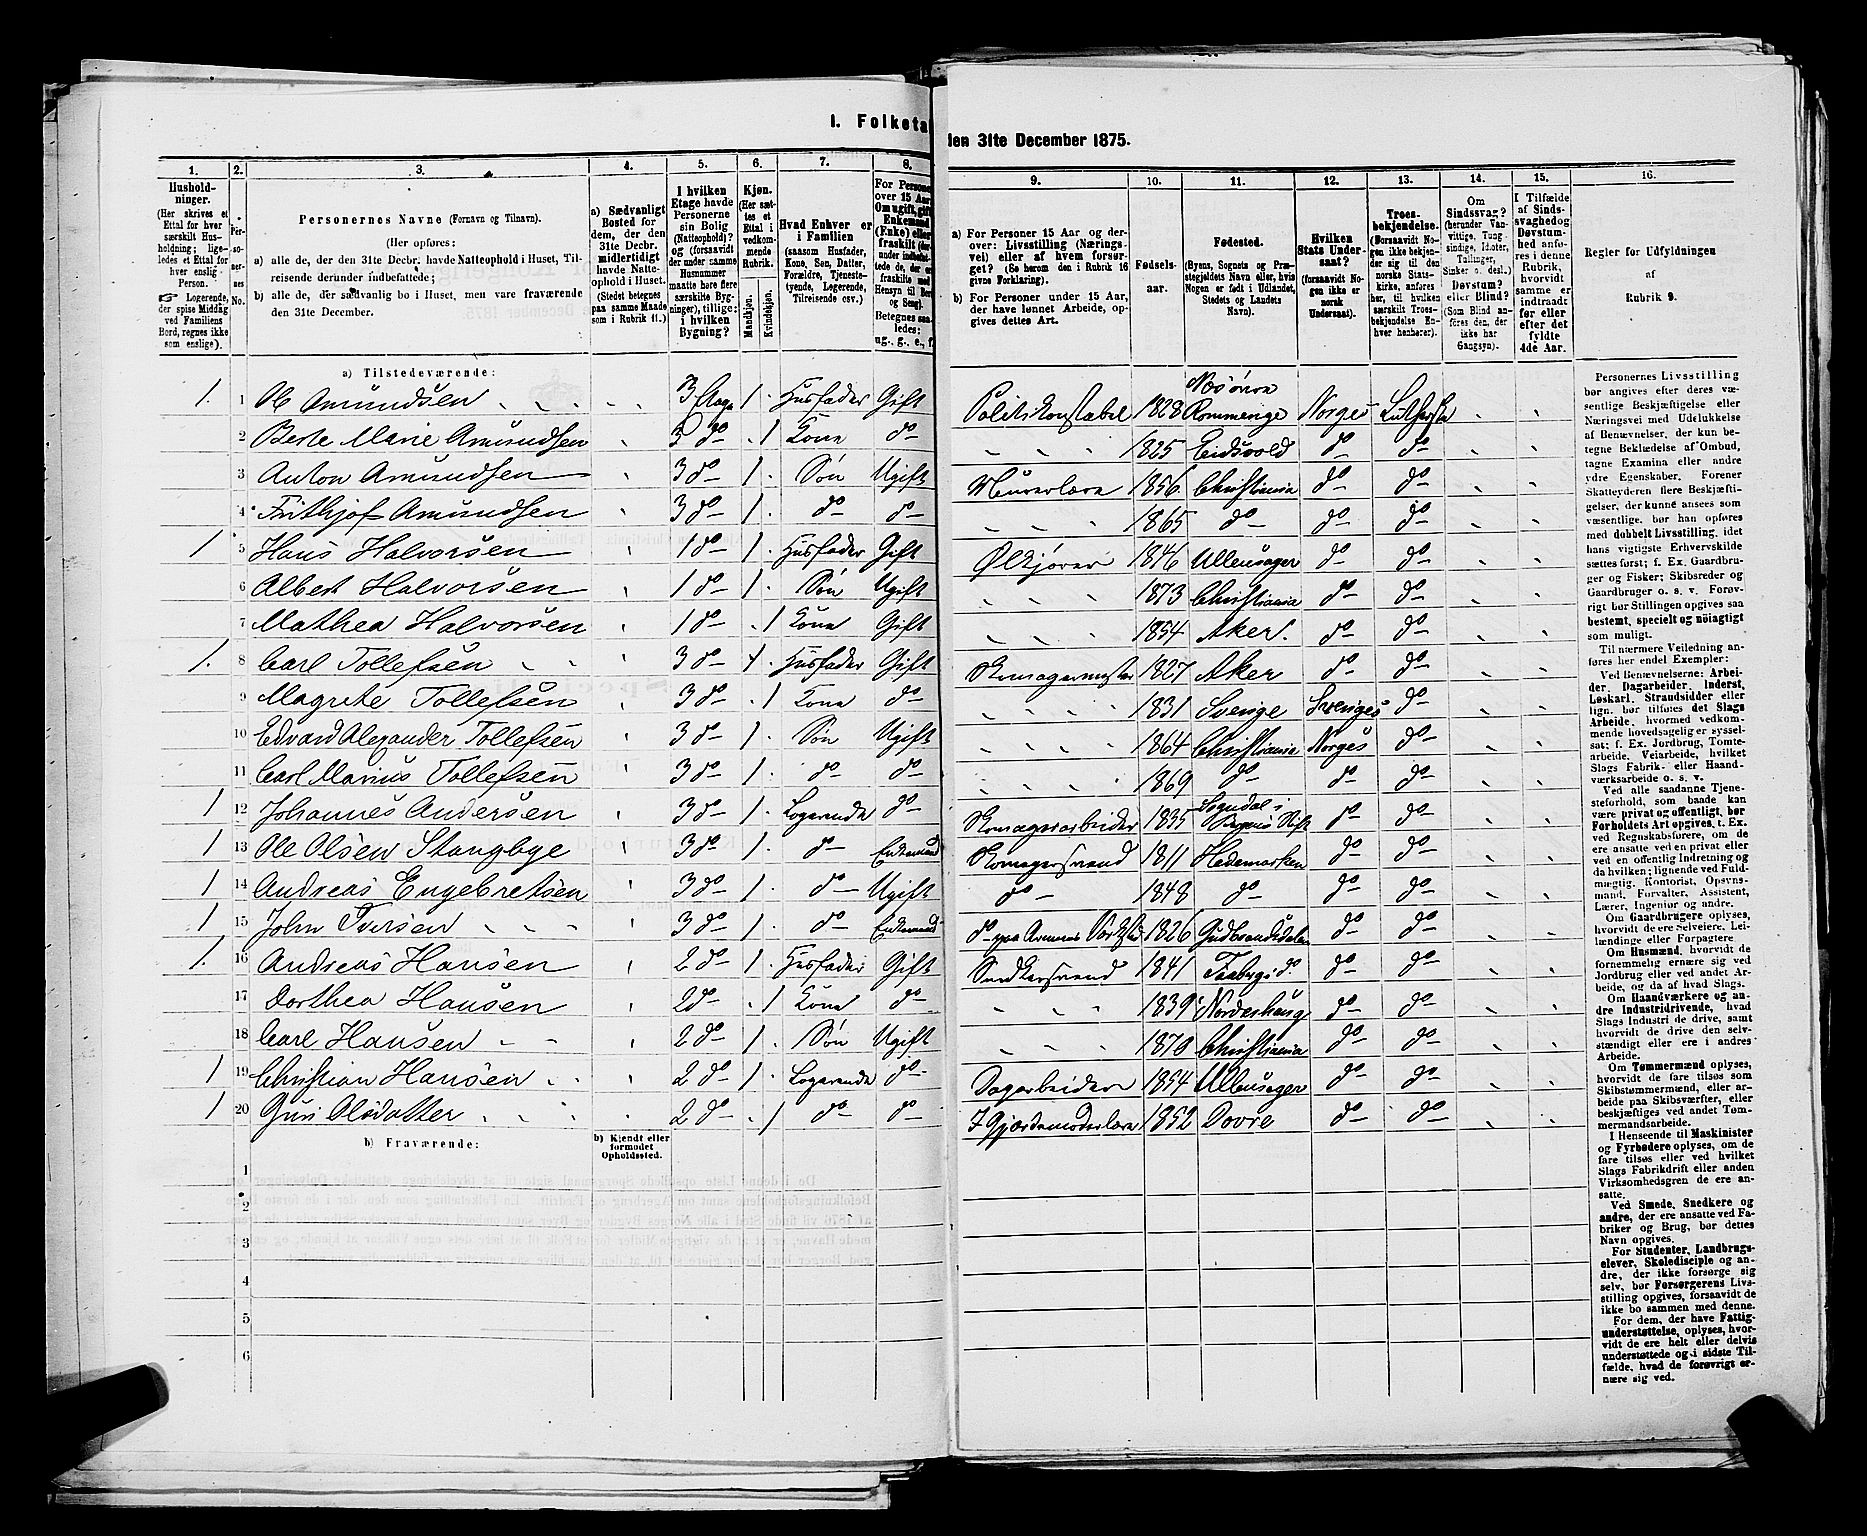 I. Folketa
den 31te December 1875.
1. 2. 3. 4. 5. 6. 7. 8. 9. 10. 11. 12. 13. 14. 15. 16.
Husholdninger.
(Her skrives et Ettal for hver særskilt Husholdning; ligeledes et Ettal for hver enslig Person.
☞ Logerende, der spise Middag ved Familiens Bord, regnes ikke som enslige).
Personernes No.
Personernes Navne (Fornavn og Tilnavn).
(Her opføres:
a) alle de, der den 31te Decbr. havde Natteophold i Huset, Tilreisende derunder indbefattede;
b) alle de, der sædvanlig bo i Huset, men vare fraværende den 31te December.
a) Sædvanligt Bosted for dem, der den 31te Decbr. midlertidigt havde Natteophold i Huset.
(Stedet betegnes paa samme Maade som i Rubrik 11.)
I hvilken Etage havde Personerne sin Bolig (Natteophold)? og (forsaavidt der under samme Husnummer maatte høre flere særskilte Bygninger), tillige: i hvilken Bygning?
Kjøn.
(Her sættes et Ettal i vedkommende Rubrik.
Mandkjøn. Kvindekjøn.
Hvad Enhver er i Familien
(saasom Husfader, Kone, Søn, Datter, Forældre, Tjenestetyende, Logerende, Tilreisende osv.)
For Persone over 15 Aar Om ugift, gift Enkemand (Enke) eller fraskilt
Betegnes saaledes: ug., g., e., f.
a) For Personer 15 Aar og derover: Livsstilling (Næringsvei) eller af hvem forsørget? (Se herom den i Rubrik 16 givne Forklaring).
b) For Personer under 15 Aar, der have lønnet Arbeide, opgives dettes Art.
Fødselsaar.
Fødested.
(Byens, Sognets og Præstegjeldets Navn eller, hvis Nogen er født i Udlandet, Stedets og Landets Navn).
Hvilken Stats Undersaat?
(forsaavidt Nogen ikke er norsk Undersaat).
Troesbekjendelse.
(Forsaavidt Nogen ikke bekjender sig til den norske Statskirke, anføres her, til hvilken særskilt Troesbekjendelse Enhver henhører).
Om Sindssvag? (herunder Vanvittige, Tungsindige, Idioter, Tullinger, Sinker o. desl.) Døvstum? eller Blind? (Som Blind anføres den, der ikke har Gangsyn).
I Tilfælde af Sindssvaghed og Døvstumhed anføres i denne Rubrik, hvorvidt samme er indtraadt før eller efter det fyldte 4de Aar.
Regler for Udfyldningen af Rubrik 9.
a) Tilstedeværende:
1. 1 Ole Amundsen 3 Etage 1 Husfader Gift Politikonstabel 1828 Næsodden Norges Luthersk
2 Berte Marie Amundsen 3 do 1 Kone do 1825 Eidsvold do do
3 Anton Amundsen 3 do 1 Søn Ugift Murerlære 1856 Christiania do do
4 Frithjof Amundsen 3 do 1 do do 1865 do do do
1 5 Hans Halvorsen 1 do 1 Husfader Gift Ølkjører 1846 Ullensager do do
6 Albert Halvorsen 1 do 1 Søn Ugift 1873 Christiania do do
7 Mathea Halvorsen 1 do 1 Kone Gift 1854 Aker. do do
1. 8 Carl Tollefsen 3 do 1 Husfader Gift Skomagermester 1827 Aker do do
9 Magrete Tollefsen 3 do 1 Kone do 1831 Sverige Sveriges do
10 Edvard Alexander Tollefsen 3 do 1 Søn Ugift 1864 Christiania Norges do
11 Carl Marius Tollefsen 3 do 1 do do 1869 do do do
1 12 Johannes Andersen 3 do 1 Logerende do Skomagerarbeider 1835 Sogndal i Bergens Stift do do
1 13 Ole Olsen Stangbye 3 do 1 do Enkemand Skomagersvend 1811 Hedemarken do do
1 14 Andreas Engebretsen 3 do 1 do Ugift do 1848 do do do
1 15 John Iversen 3 do 1 do Enkemand do paa 1826 Gudbrandsdalen do do
1. 16 Andreas Hansen 2 do 1 Husfader Gift Snedkersvend 1841 Faaberg i do. do do
17 Dorthea Hansen 2 do 1 Kone do 1839 Nordrehaug do do
18 Carl Hansen 2 do 1 Søn Ugift 1870 Christiania do do
1 19 Christian Hansen 2 do 1 Logerende do Dagarbeider 1854 Ullensager do do
1 20 Guri Olsdatter 2 do 1 do do I Gjordemoderlære 1852 Dovre do do
b) Fraværende:
b) Kjendt eller formodet Opholdssted.
1
2
3
4
5
6
Personernes Livsstilling bør angives efter deres væsentlige Beskjæftigelse eller Næringsvei med Udelukkelse af Benævnelser, der kun betegne Beklædelse af Ombud, tagne Examina eller andre ydre Egenskaber. Forener Skatteyderen flere Beskjæftigelser, der kunne ansees som væsentlige, bør han opføres med dobbelt Livsstilling, idet hans vigtigste Erhvervskilde sættes først; f. Ex. Gaardbruger og Fisker; Skibsreder og Gaardbruger o. s. v. Forøvrigt bør Stillingen opgives saa bestemt, specielt og nøiagtigt som muligt.
Til nærmere Veiledning anføres her endel Exempler:
Ved Benævnelserne: Arbeider, Dagarbeider, Inderst, Løskarl, Strandsidder eller lign. bør tilføies det Slags Arbeide, hvormed vedkommende hovedsagelig er sysselsat; f. Ex. Jordbrug, Tomtearbeide, Veiarbeide, hvilket Slags Fabrik- eller Haandværksarbeide o. s. v.
Ved alle saadanne Tjenesteforhold, som baade kan være privat og offentligt, bør Forholdets Art opgives, t. Ex. ved Regnskabsførere, om de ere ansatte ved en privat eller ved en offentlig Indretning og da hvilken; lignende ved Fuldmægtig, Kontorist, Opsynsmand, Forvalter, Assistent, Lærer, Ingeniør og andre.
Om Gaardbrugere oplyses, hvorvidt de ere Selveiere, Leilændinge eller Forpagtere
Om Husmænd, hvorvidt de fornemmelig ernære sig ved Jordbrug eller ved andet Arbeide, og da af hvad Slags.
Om Haandværkere og andre Industridrivende, hvad Slags Industri de drive, samt hvorvidt de drive den selvstændigt eller ere i andres Arbeide.
Om Tømmermænd oplyses, hvorvidt de fare tilsøs som Skibstømmermænd, eller arbeide paa Skibsværfter, eller beskjæftiges ved andet Tømmermandsarbeide.
I Henseende til Maskinister og Fyrbødere oplyses, om de fare tilsøs eller ved hvilket Slags Fabrikdrift eller anden Virksomhedsgren de ere ansatte.
Ved Smede, Snedkere og andre, der ere ansatte ved Fabriker og Brug, bør dettes Navn opgives.
For Studenter, Landbrugselever, Skoledisciple og andre, der ikke forsørge sig selv, bør Forsørgerens Livsstilling opgives, forsaavidt de ikke bo sammen med denne.
For dem, der have Fattigunderstøttelse, oplyses, hvorvidt de ere helt eller delvis understøttede og i sidste Tilfælde, hvad de forøvrigt ernære sig ved.